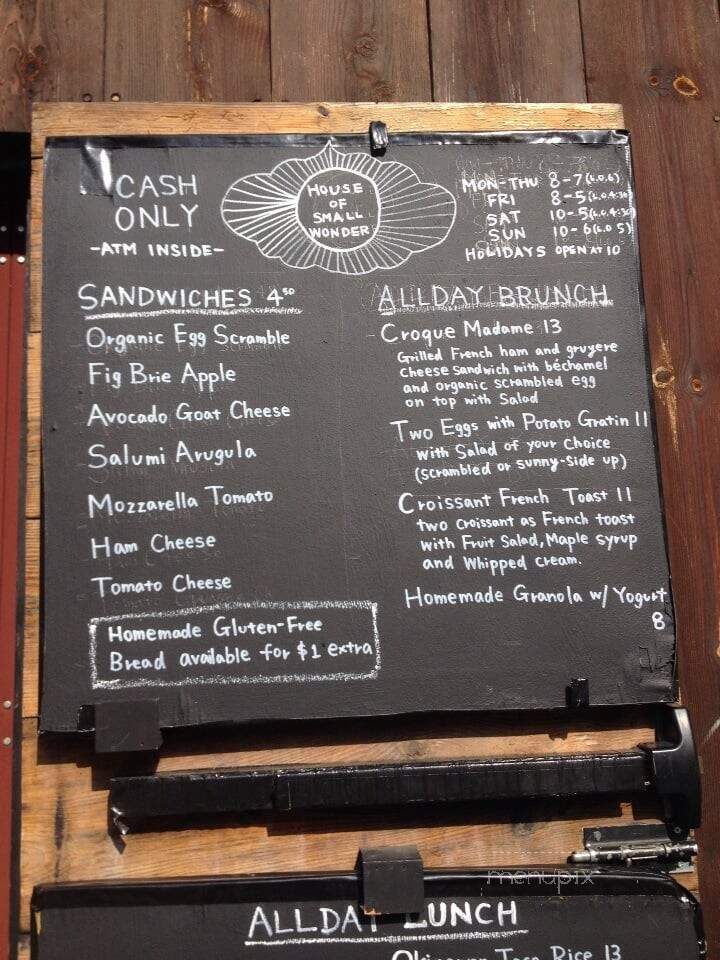 CASH
ONLY
-ATM INSIDE-
HOUSE
OF
SMALL
WONDER
MON-THU 8-7(L.O.6)
FRI 8-5(L.O.4:30)
SAT 10-5(L.O.4:30)
SUN 10-6(L.O 5)
HOLIDAYS OPEN AT 10
SANDWICHES 4.50
Organic Egg Scramble
Fig Brie Apple
Avocado Goat Cheese
Salumi Arugula
Mozzarella Tomato
Ham Cheese
Tomato Cheese
Homemade Gluten-Free
Bread available for $1 extra
ALLDAY BRUNCH
Croque Madame 13
Grilled French ham and gruyere
cheese sandwich with béchamel
and organic scrambled egg
on top with Salad
Two Eggs with Potato Gratin 11
with Salad of your choice
(scrambled or sunny-side up)
Croissant French Toast 11
two croissant as French toast
with Fruit Salad, Maple syrup
and Whipped cream.
Homemade Granola w/ Yogurt
8
menupix
ALLDAY LUNCH
Okinawan Taco Rice 13